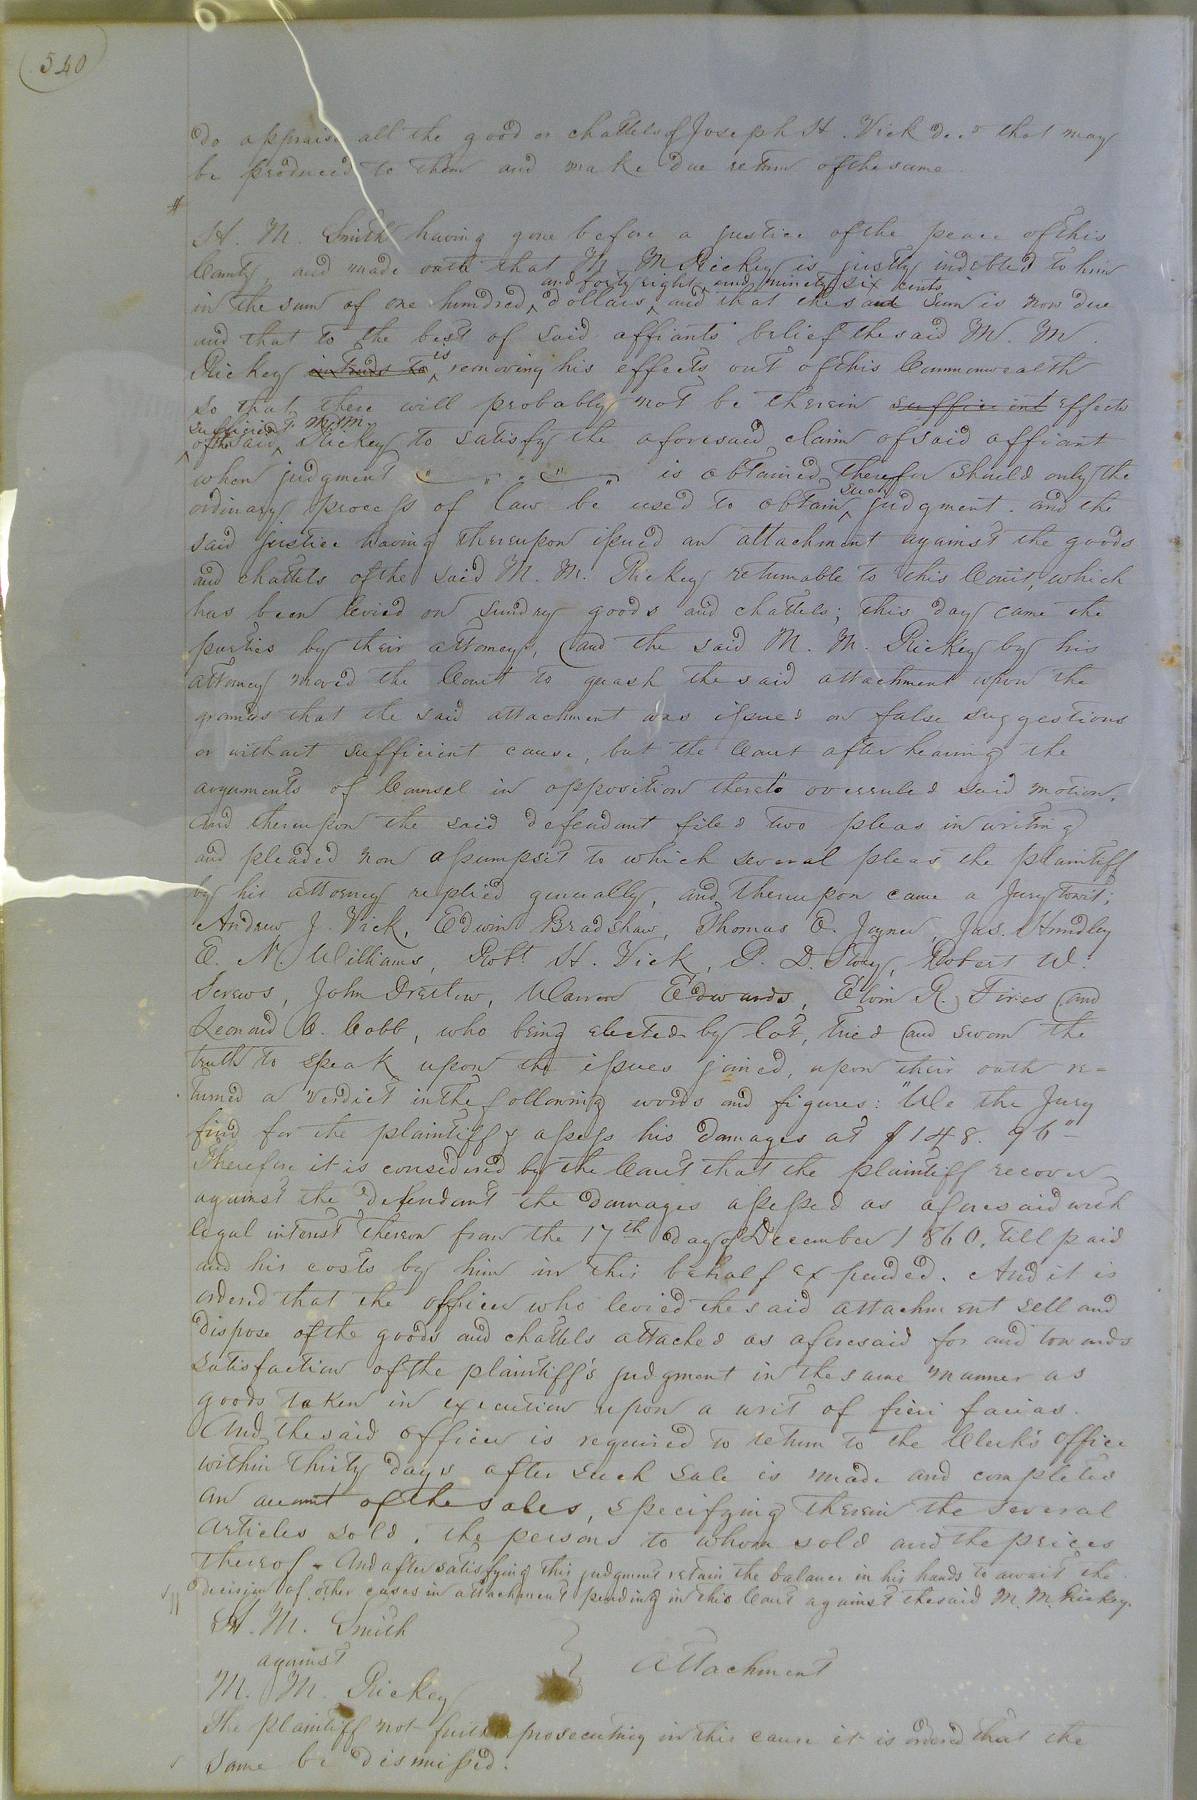 540
do appraise all the good or chattels of Joseph H. Vick dec'd that may
be produced to them and make due return of the same
H. M. Smith having gone before a justice of the peace of this
County, and made oath that M. M. Rickey is justly indebted to him
and forty eight and ninety six cents
in the sum of one hundred dollars and that the said sum is now due
and that to the best of said affiants belief the said M. M.
Rickey intends to is removing his effects out of this Commonwealth
so that there will probably not be therein sufficient effects
sufficient M. M.
of the said Rickey to satisfy the aforesaid claim of said affiant
when judgment is obtained therefor should only the
ordinary process of law be used to obtain such judgment. and the
said justice having thereupon issued an attachment against the goods
and chattels of the said M. M. Rickey returnable to this Court, which
has been levied on sundry goods and chattels; this day came the
parties by their attorneys, and the said M. M. Rickey by his
attorney moved the Court to quash the said attachment upon the
grounds that the said attachment was issued on false suggestions
or without sufficient cause, but the Court after hearing the
arguments of Counsel in opposition thereto overruled said motion.
And thereupon the said defendant filed two pleas in writing
and pleaded non assumpsit to which several pleas the plaintiff
by his attorney replied generally, and thereupon came a Jury towit;
Andrew J. Vick, Edwin Bradshaw, Thomas E. Joyner, Jas. Hundley
E. N. Williams, Robt H. Vick, P. D. Ivey, Robert W.
Screws, John Preston, Warren Edwards, Elvin R. Fires and
Leonard C. Cobb, who being elected by lot, tried and sworn the
truth to speak upon the issues joined, upon their oath re=
turned a verdict in the following words and figures: "We the Jury
find for the plaintiff & assess his damages at $148. 96"
Therefore it is considered by the Court that the plaintiff recover
against the defendant the damages assessed as aforesaid with
legal interest thereon from the 17th day of December 1860, till paid
and his costs by him in this behalf expended. And it is
ordered that the officer who levied the said attachment sell and
dispose of the goods and chattels attached as aforesaid for and towards
satisfaction of the plaintiff's judgment in the same manner as
goods taken in execution upon a writ of fieri facias.
And the said officer is required to return to the Clerk's office
within thirty days after such sale is made and completed
an account of the sales, specifying therein the several
articles sold, the persons to whom sold and the prices
thereof. And after satisfying this judgment retain the balance in his hands to await the
decision of other cases in attachment pending in this Court against the said M. M. Rickey.
H. M. Smith
against
Attachment
M. M. Rickey
The plaintiff not further prosecuting in this cause it is ordered that the
same be dismissed.